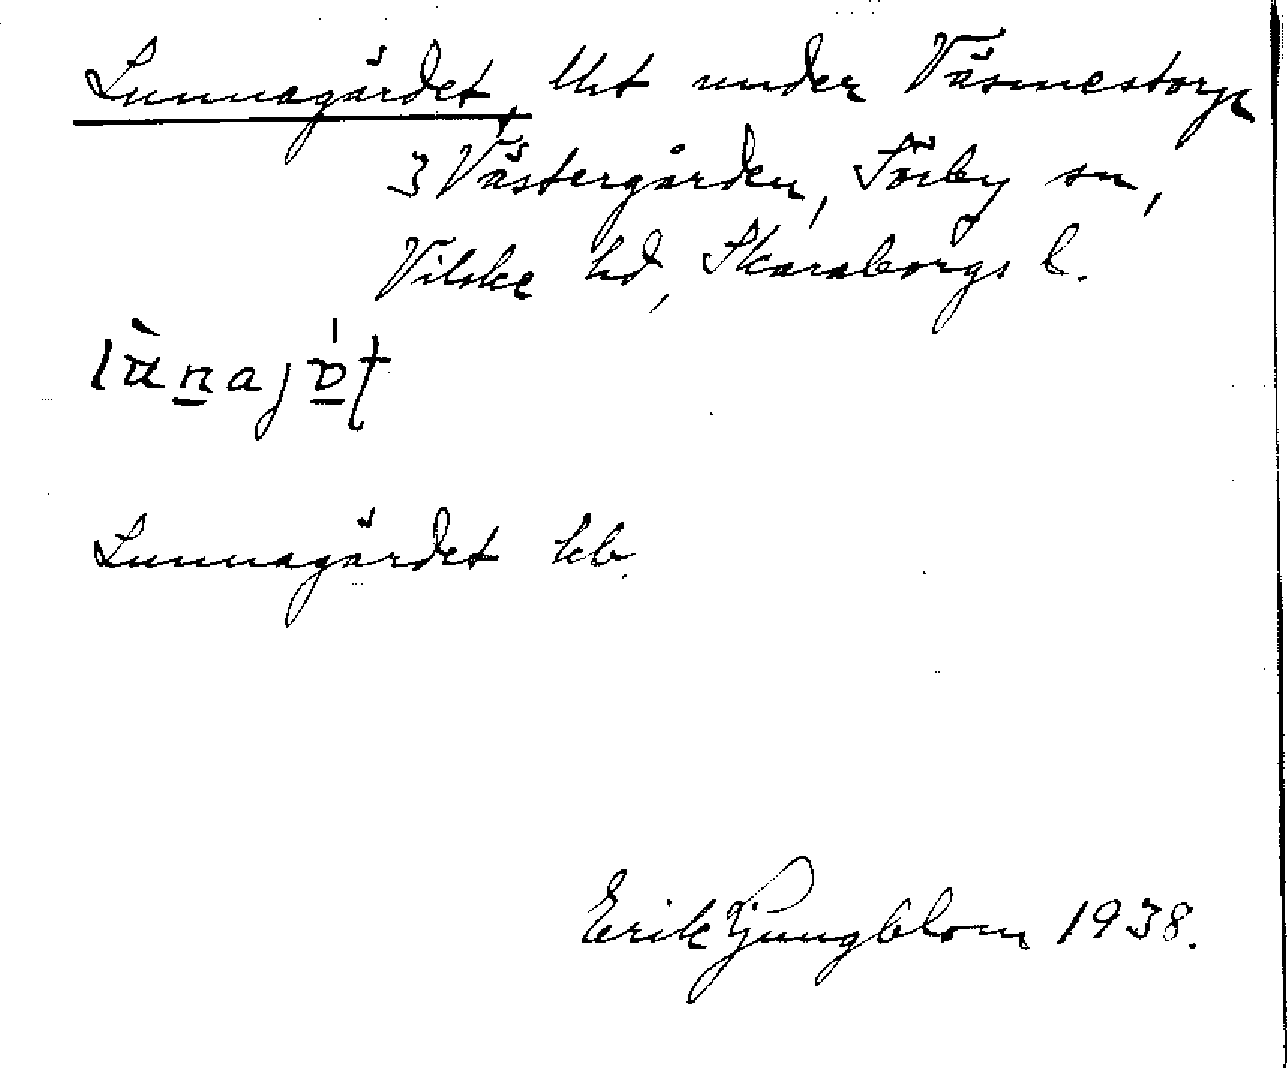 Lunnagärdet, lht under Väsmestorp
3 Västergården, Sörby sn,
Vilske hd, Skaraborgs l.
Lunnagärdet hb.
Erik Ljungblom 1938.